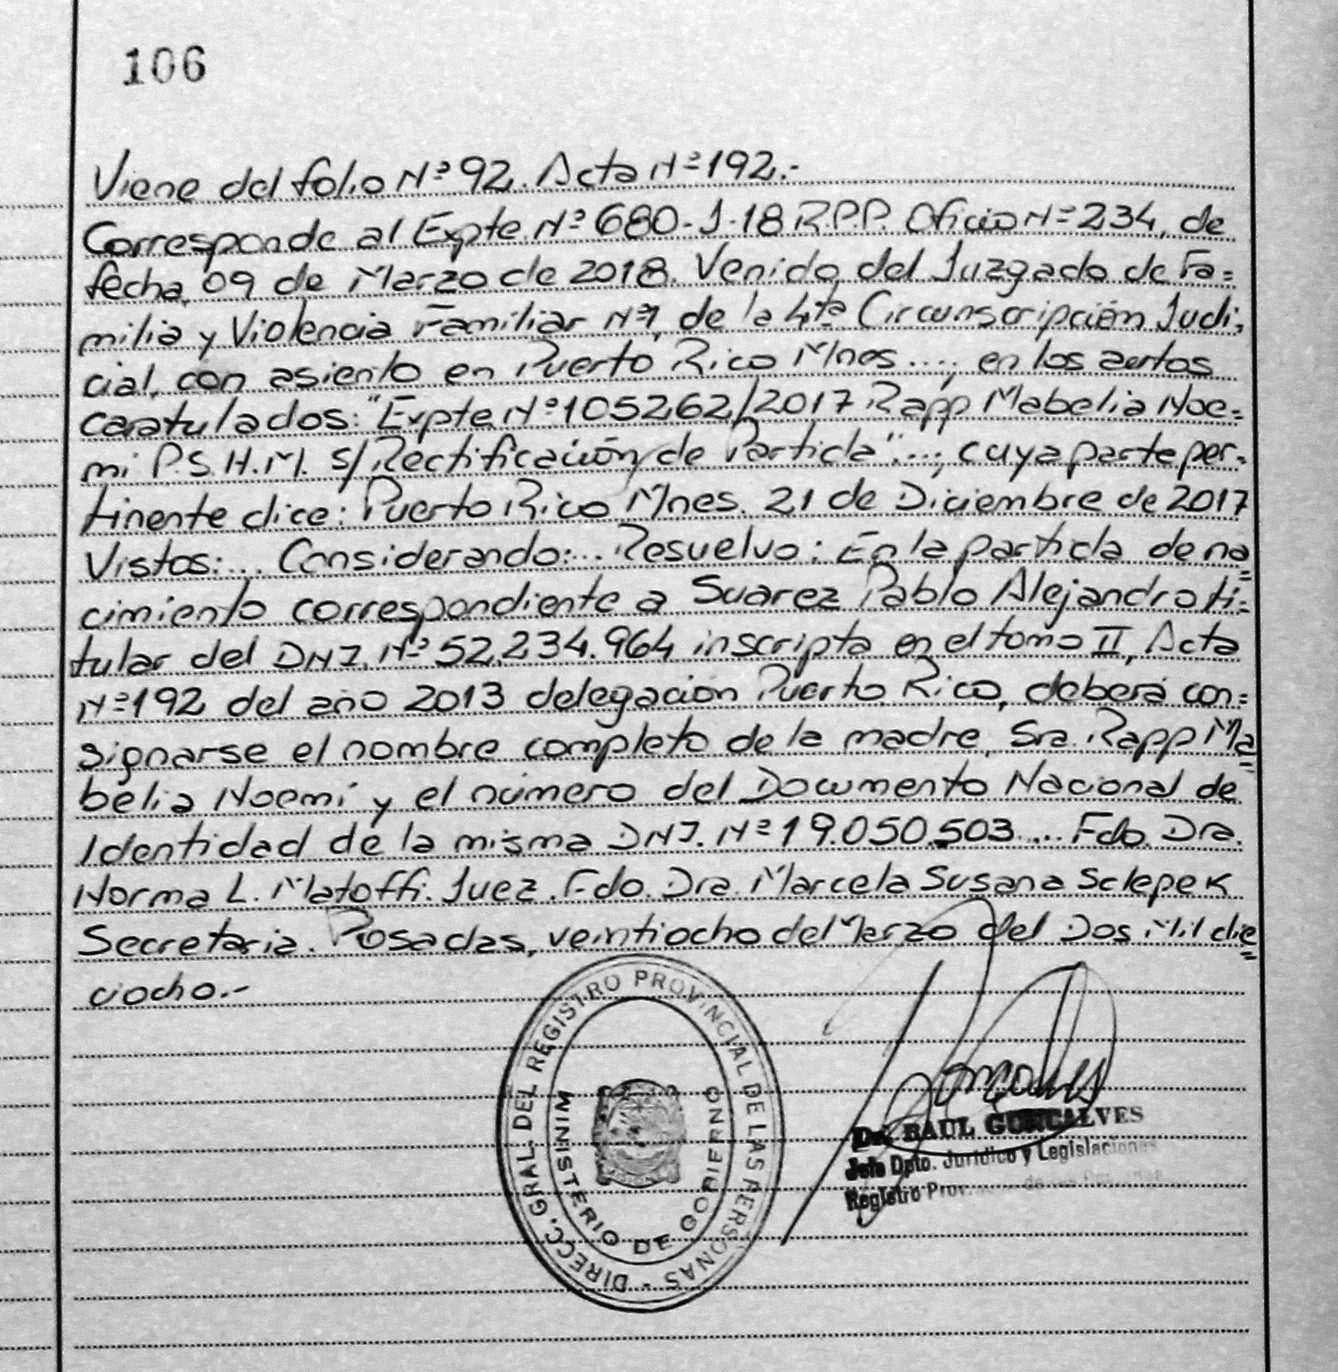 106
Viene del folio Nº 92. Acta Nº 192.-
Corresponde al Expte. Nº 680-J-18 R.P.P. Oficio Nº 234, de
fecha 09 de Marzo de 2018. Venido del Juzgado de Fa=
milia y Violencia Familiar Nº1, de la 4ta Circunscripción Judi,
cial, con asiento en Puerto Rico Mnes....; en los autos
caratulados: "Expte. Nº 105262/2017 Rapp Mabelia Noe=
mi P.S.H.M. S/Rectificación de Partida"...; cuya parte per=
tinente dice: Puerto Rico Mnes. 21 de Diciembre de 2017
Vistos:... Considerando:... Resuelvo: En la partida de na
cimiento correspondiente a Suarez Pablo Alejandro ti=
tular del DNI. Nº 52.234.964 inscripta en el tomo II, Acta
Nº 192 del año 2013 delegación Puerto Rico, deberá con=
signarse el nombre completo de la madre, Sra. Rapp Ma
belia Noemi y el número del Documento Nacional de
Identidad de la misma DNI. Nº 19.050.503.... Fdo. Dra.
Norma L. Matoffi. Juez. Fdo. Dra. Marcela Susana Sclepek
Secretaria. Posadas, veintiocho del Marzo del Dos Mil die
ciocho.-
DIRECC. GRAL. DEL REGISTRO PROVINCIAL DE LAS PERSONAS -
MINISTERIO DE GOBIERNO
Dr. RAUL GONCALVES
Jefe Dpto. Jurídico y Legislaciones
Registro Prov. de las Personas